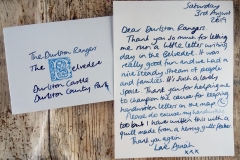 The Durlston Rangers
The Belvedere
Durlston Castle
Durlston Country Park
Saturday
3rd August
2019
Dear Durlston Rangers
Thank you so much for letting
me run a little letter writing
day in the Belvedere. It was
really good fun and we had a
nice steady stream of people
and families. It's such a lovely
space. Thank you for helping me
to champion the cause for keeping
handwritten letters on the map!
Please do excuse my handwriting
too but I have written this with a
quill made from a herring gull's feather
Thank you again
Love Dinah
xxx